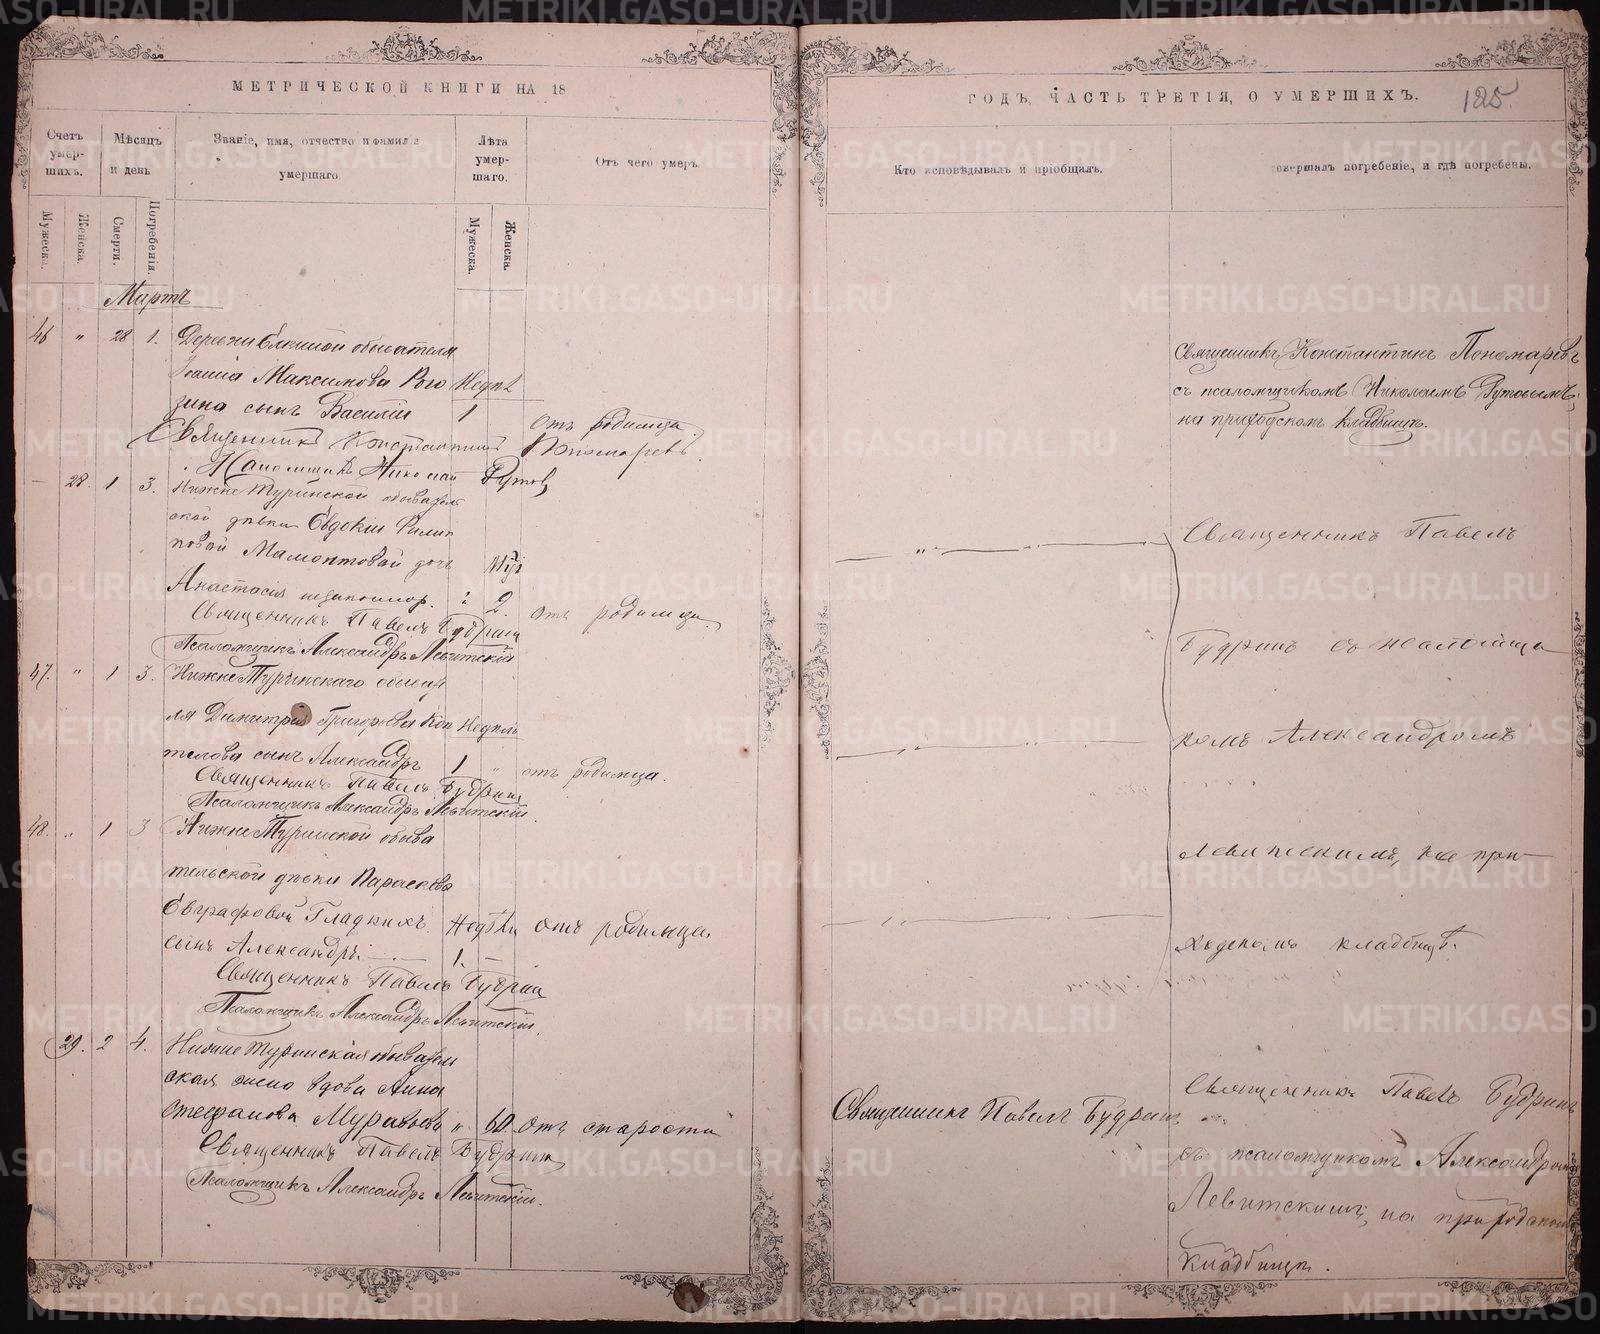 МЕТРИЧЕСКОЙ КНИГИ НА 18
ГОДЪ, ЧАСТЬ ТРЕТІЯ, О УМЕРШИХЪ.
125
Счетъ умер-шихъ.
Мѣсяцъ и день
Званіе, имя, отчество и фамилія умершаго.
Лѣта умер-шаго.
Отъ чего умеръ.
Кто исповѣдывалъ и пріобщалъ.
совершалъ погребеніе, и гдѣ погребены.
Мужеска.
Женска.
Смерти.
Погребенія.
Мужеска.
Женска.
Мартъ
46 " 28 1. Деревни обывателя
Іоанна Максимова Рого
зина сынъ Василій 1 отъ родимца
Священникъ Константинъ Пономаревъ.
Псаломщикъ Николай
Священникъ Константинъ Пономаревъ
съ псаломщикомъ Николаемъ
на приходскомъ кладбищѣ.
28. 1 3. Нижне Туринской обыватель
ской дѣвки Евдокіи Филип
повой Мамонтовой дочь
Анастасія незаконнор. 2. отъ родимца.
Священникъ Павелъ Будринъ
Псаломщикъ Александръ Левитскій
47. " 1 3. Нижне Туринскаго обыват
ля Димитрія Григорьева Коп Недѣль
телова сынъ Александръ 1 " отъ родимца.
Священникъ Павелъ Будринъ
Псаломщикъ Александръ Левитскій.
48. " 1 3 Нижне Туринской обыва
тельской дѣвки Параскевы
Евграфовой Гладкихъ Недѣли отъ родимца
сынъ Александръ 1. —
Священникъ Павелъ Будринъ
Псаломщикъ Александръ Левитскій.
Священникъ Павелъ
Будринъ съ псаломщи
комъ Александромъ
Левитскимъ, на при
ходскомъ кладбищѣ.
29. 2 4. Нижне Туринская обыватель
ская жена вдова Анна
Стефанова Муравьева " 60 отъ старости
Священникъ Павелъ Будринъ
Псаломщикъ Александръ Левитскій.
Священникъ Павелъ Будринъ
Священникъ Павелъ Будринъ
съ псаломщикомъ Александромъ
Левитскимъ, на приходскомъ
кладбищѣ.
METRIKI.GASO-URAL.RU